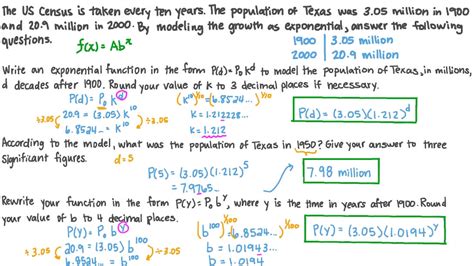 The US Census is taken every ten years. The population of Texas was 3.05 million in 1900
and 20.9 million in 2000. By modeling the growth as exponential, answer the following
questions.
f(x) = Abˣ
1900 | 3.05 million
2000 | 20.9 million
Write an exponential function in the form P(d) = P₀ kᵈ to model the population of Texas, in millions,
d decades after 1900. Round your value of k to 3 decimal places if necessary.
P(d) = P₀ kᵈ
÷3.05 20.9 = (3.05)k¹⁰ ÷3.05
6.8524... = k¹⁰
(k¹⁰)^1/10 = (6.8524...)^1/10
k = 1.21228...
k = 1.212
P(d) = (3.05)(1.212)ᵈ
According to the model, what was the population of Texas in 1950? Give your answer to three
significant figures.
d=5
P(5) = (3.05)(1.212)⁵
= 7.9765...
7.98 million
Rewrite your function in the form P(y) = P₀ bʸ, where y is the time in years after 1900. Round
your value of b to 4 decimal places.
P(y) = P₀ bʸ
÷3.05 20.9 = (3.05)b¹⁰⁰ ÷3.05
6.8524... = b¹⁰⁰
(b¹⁰⁰)^1/100 = (6.8524...)^1/100
b = 1.01943...
b = 1.0194
P(y) = (3.05)(1.0194)ʸ